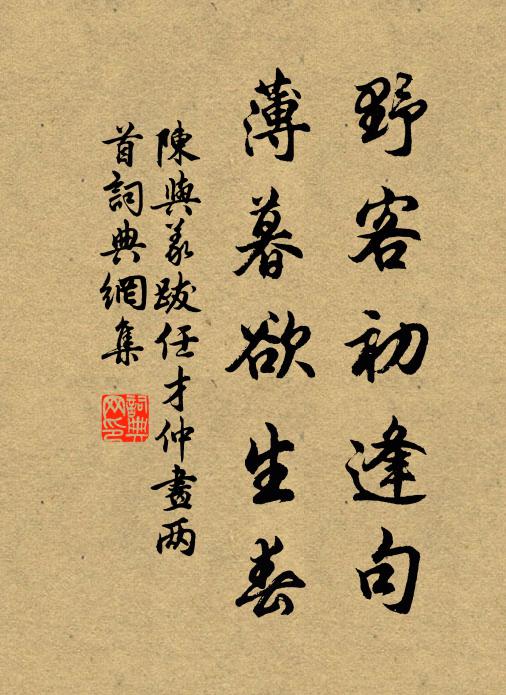 野客初逢句
薄暮欲生春
陳與義跋任才仲畫两
首詞典網集
詞典
网印